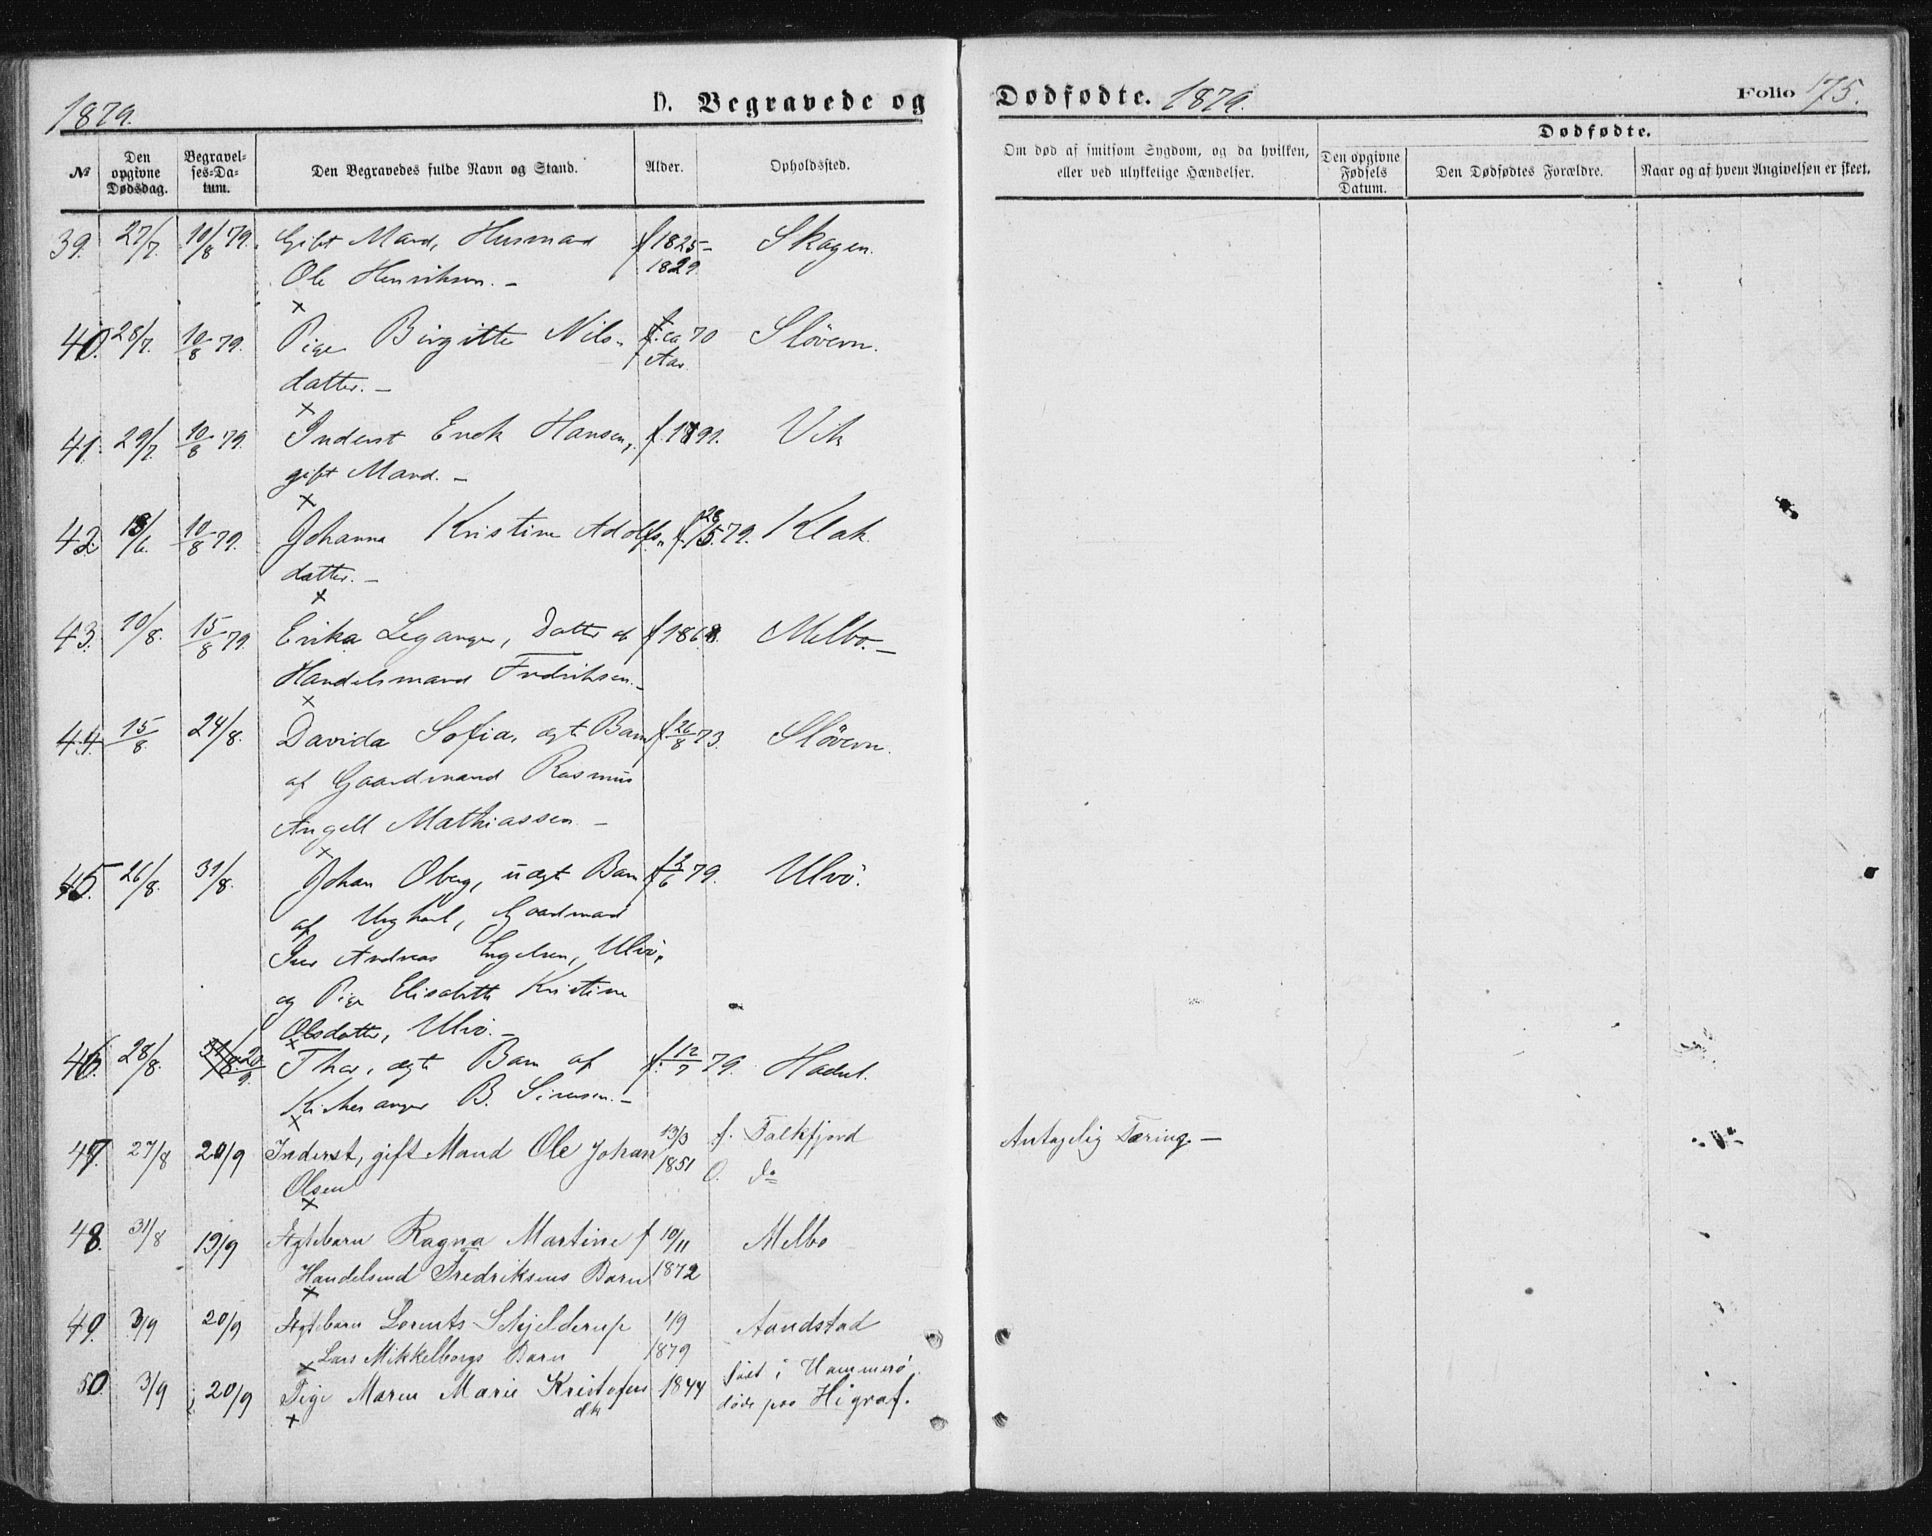 1879.
D. Begravede og
Dødfødte. 1879.
Folio 175.
№
Den opgivne Dødsdag.
Begravelses-Datum.
Den Begravedes fulde Navn og Stand.
Alder.
Opholdssted.
Om død af smitsom Sygdom, og da hvilken, eller ved ulykkelige Hændelser.
Dødfødte.
Den opgivne Fødsels Datum.
Den Dødfødtes Forældre.
Naar og af hvem Angivelsen er skeet.
39. 27/7. 10/8 79. Gift Mand, Husmand f 1825- Skagen.
Ole Henriksen. - 1829.
40. 28/7. 10/8 79. Pige Birgitte Nils- f. ca 70 Sløvern.
datter. - Aar.
41. 29/7. 10/8 79. Inderst Erik Hansen, Vik
gift Mand. -
42. /6. 10/8 79. Johanna Kristine Adolfs- f. 28/5. 79. Klak.
datter. -
43. 10/8. 15/8 79. Erika Leganger, Datter af f 1868. Melbo. -
Handelsmand Fredriksen. -
44. 15/8 24/8. Davida Sofia, ægt Barn f 26/8 73. Sløvern.
af Gaardmand Rasmus
Angell Mathiassen -
45. 26/8. 31/8. Johan Oberg, uægt Barn f /6 79. Ulvö.
af Ungkarl, Gaardmand
Iver Andreas Engelsen, Ulvö,
og Pige Elisabeth Kristine
Olsdatter, Ulvö. -
46. 28/8. 31/8. 20/9. Thor, ægte Barn af f. 12/7 79. Hadsel.
Kirkesanger B. Sivensen. -
47. 27/8 20/9 Inderst, gift Mand Ole Johan 13/3 f. Falkfjord Antagelig Tæring. -
Olsen 1851 O. do
48. 31/8 19/9 Ægtebarn Ragna Martine f 10/11 Melbo
Handelsmd Fredriksens Barn 1872
49. 3/9 20/9 Ægtebarn Lorents Schjelderup 1/9 Aandstad
Lars Mikkelborgs Barn 1879
50. 3/9 20/9 Pige Maren Marie Kristofers 1844 født i Hammerö
dtr døde paa Higraf.